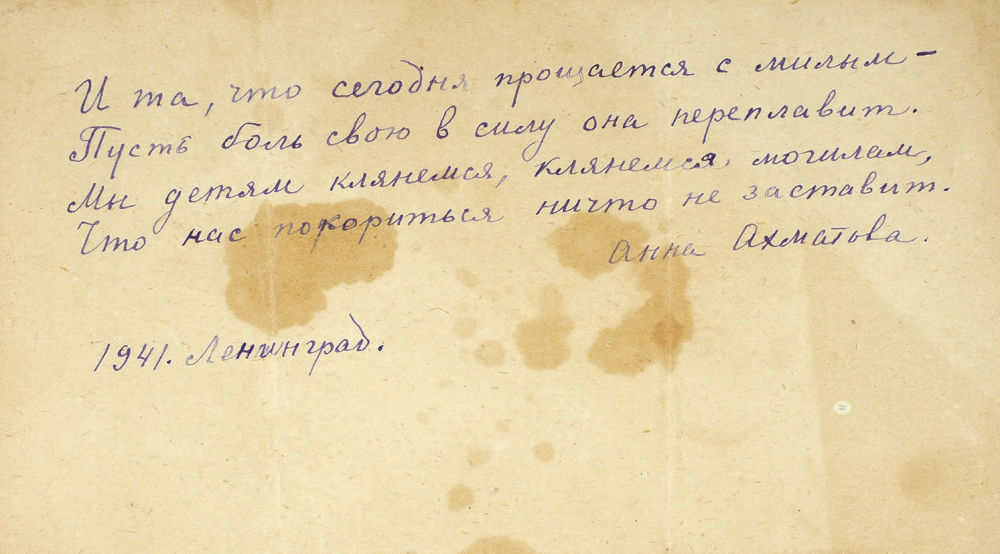 И та, что сегодня прощается с милым –
Пусть боль свою в силу она переплавит.
Мы детям клянемся, клянемся могилам,
Что нас покориться ничто не заставит.
Анна Ахматова.
1941. Ленинград.